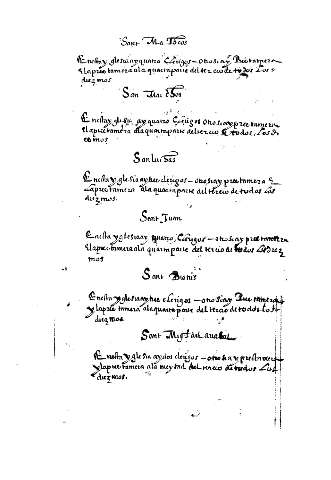 Sant Matheos
En esta yglesia ay quatro clerigos – otosi ay prestamera
& la prestamera a la quarta parte del tercio de todos los
diezmos
San Marchos
En esta yglesia ay quatro clerigos otosi ay prestamera
& la prestamera a la quarta parte del tercio de todos los
diezmos.
San Luchas
En esta yglesia ay tres clerigos – otosi ay prestamera &
la prestamera a la quarta parte del tercio de todos los
diezmos.
Sant Juan
En esta yglesia ay quatro clerigos – otosi ay prestamera
& la prestamera a la quarta parte del tercio de todos los diez
mos
Sant
En esta yglesia ay tres clerigos – otosi ay prestamera
y la prestamera a la quarta parte del tercio de todos los
diezmos
Sant Migel del
En esta yglesia ay dos clerigos – otosi ay prestamera
y la prestamera a la meytad del tercio de todos los
diezmos.